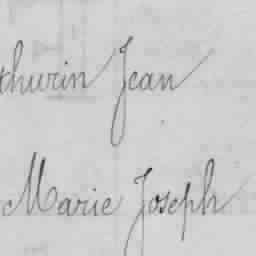 thurin Jean
Marie Joseph